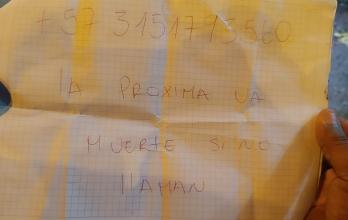 +57 3151795560
lA PROXIMA VA
MUERTE SI NO
llAMAN